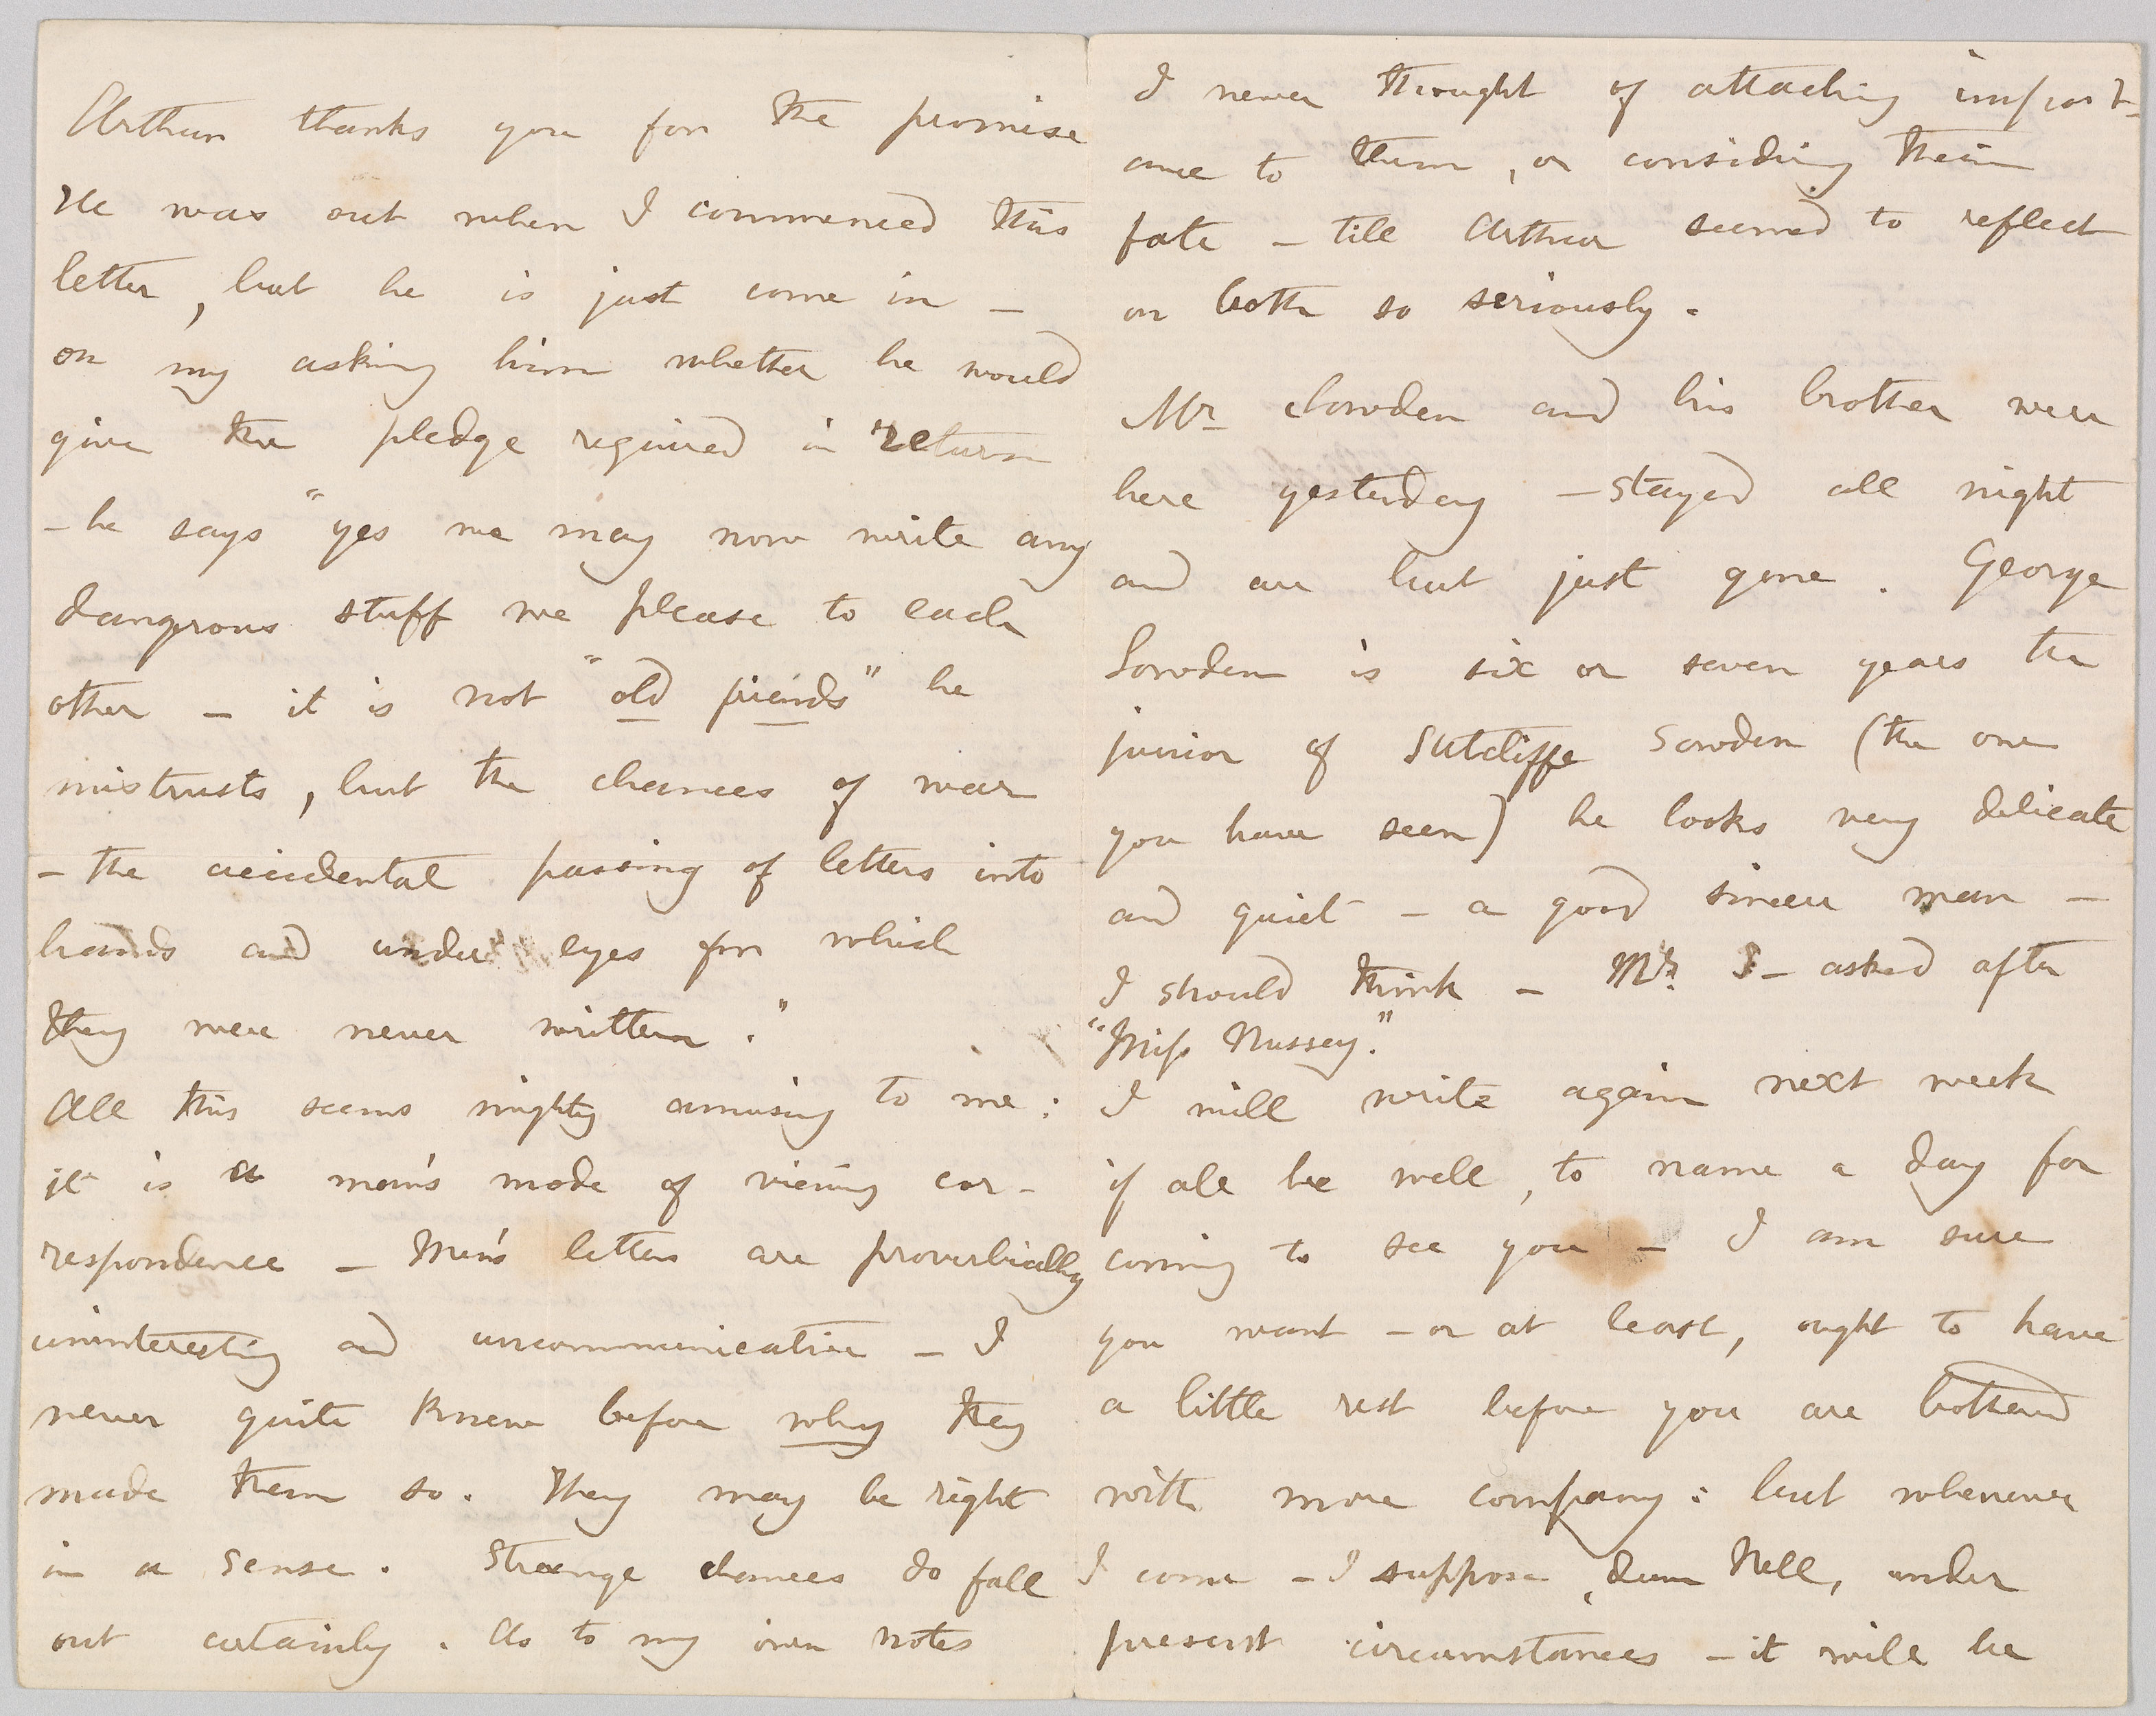 Arthur thanks you for the promise
He was out when I commenced this
letter, but he is just come in —
on my asking him whether he would
give the pledge required in return
— he says "yes we may now write any
dangerous stuff we please to each
other — it is not "old friends" he
mistrusts, but the chances of war
— the accidental passing of letters into
hands and under eyes for which
they were never written."
All this seems mighty amusing to me:
it is a man's mode of viewing cor-
respondence — Men's letters are proverbially
uninteresting and uncommunicative — I
never quite knew before why they
made them so. They may be right
in a sense. Strange chances do fall
out certainly. As to my own notes
I never thought of attaching import-
ance to them, or considing their
fate — till Arthur seemed to reflect
on both so seriously.
Mr Sowden and his brother were
here yesterday — stayed all night
and are but just gone. George
Sowden is six or seven years the
junior of Sutcliffe Sowden (the one
you have seen) he looks very delicate
and quiet — a good sincere man —
I should think — Mr. S— asked after
"Miss Nussey."
I will write again next week
if all be well, to name a day for
coming to see you — I am sure
you want — or at least, ought to have
a little rest before you are bothered
with more company: but whenever
I come — I suppose, dear Nell, under
present circumstances — it will be